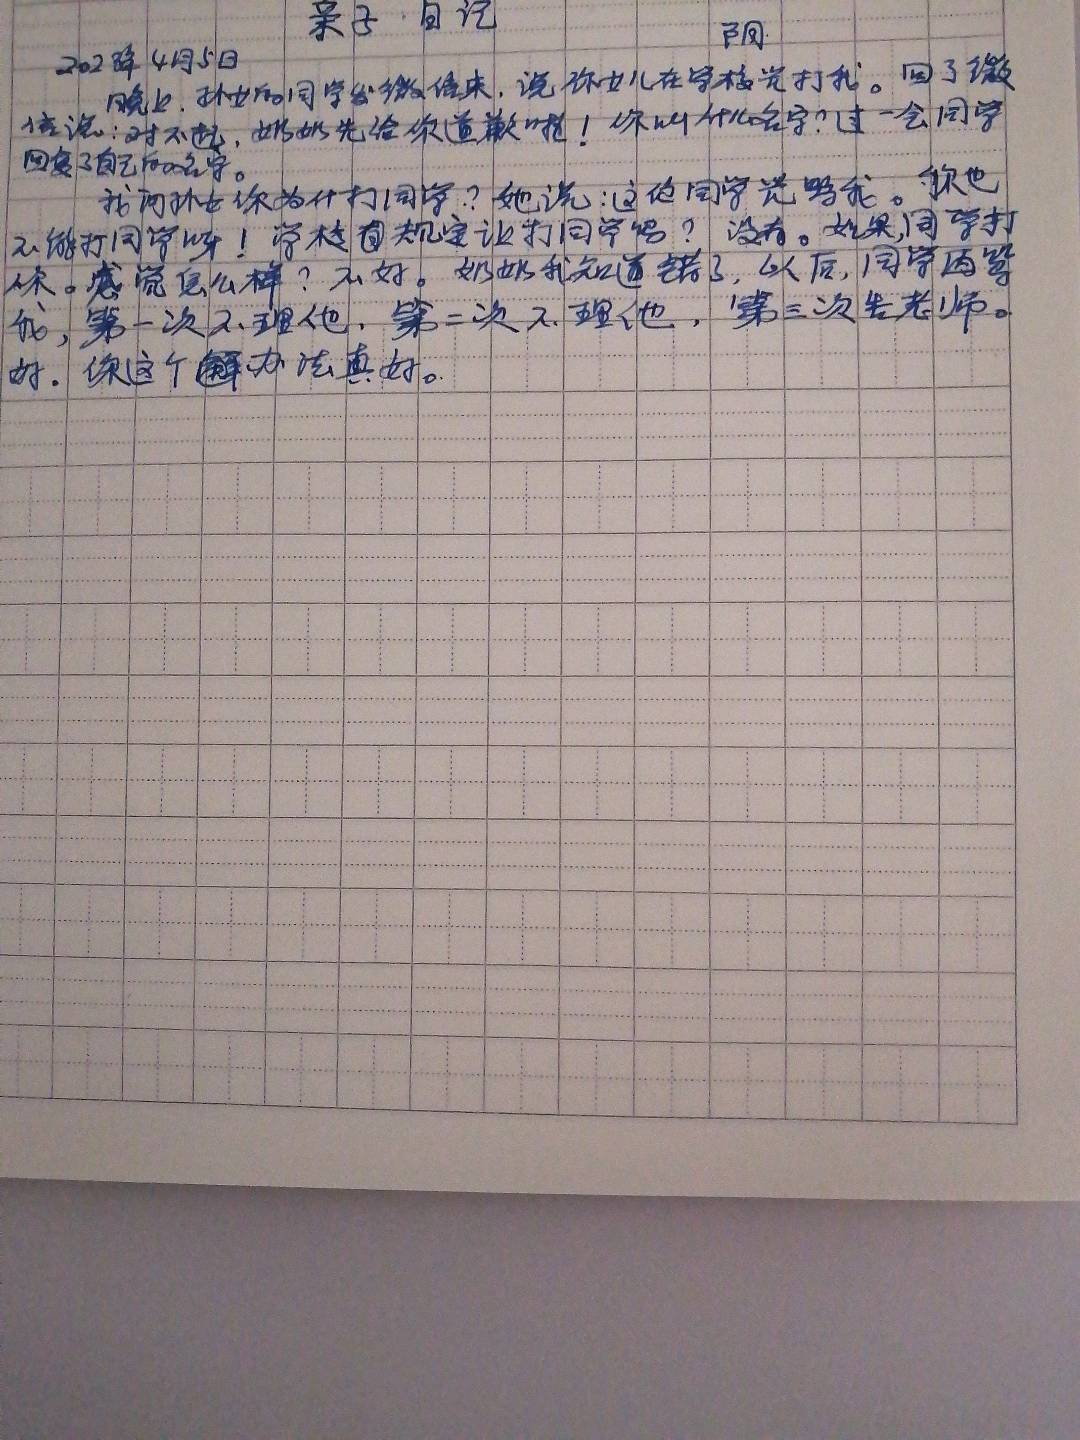 亲子日记
阴
202年4月5日
晚上,孙女的同学发微信来,说你女儿在学校光打我。回了微
信说:对不起,奶奶先给你道歉啦!你叫什么名字?过一会同学
回复了自己的名字。
我问孙女你为什打同学?她说:这位同学光骂我。你也
不能打同学呀!学校有规定让打同学吗?没有。如果,同学打
你。感觉怎么样?不好。奶奶我知道错了,以后,同学再骂
我,第一次不理他,第二次不理他,第三次告老师。
好。你这个解办法真好。